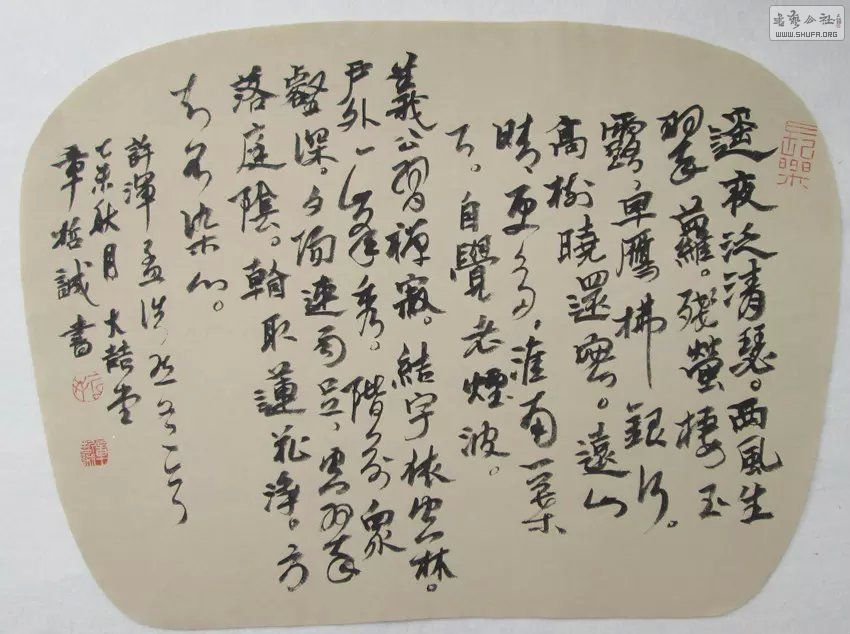 遙夜泛清瑟。西風生
翠蘿。殘螢棲玉
露,早雁拂銀河。
高樹曉還密。遠山
晴,更多,淮南一葉
下。自覺老煙波。
義公習禪寂。結宇依空林。
戶外一峰秀。階前眾
壑深。夕陽連雨足,空翠
落庭陰。看取蓮花淨。方
知不染心。
許渾 孟浩然
乙未秋月 大喆堂
章哲誠書
WWW.SHUFA.ORG